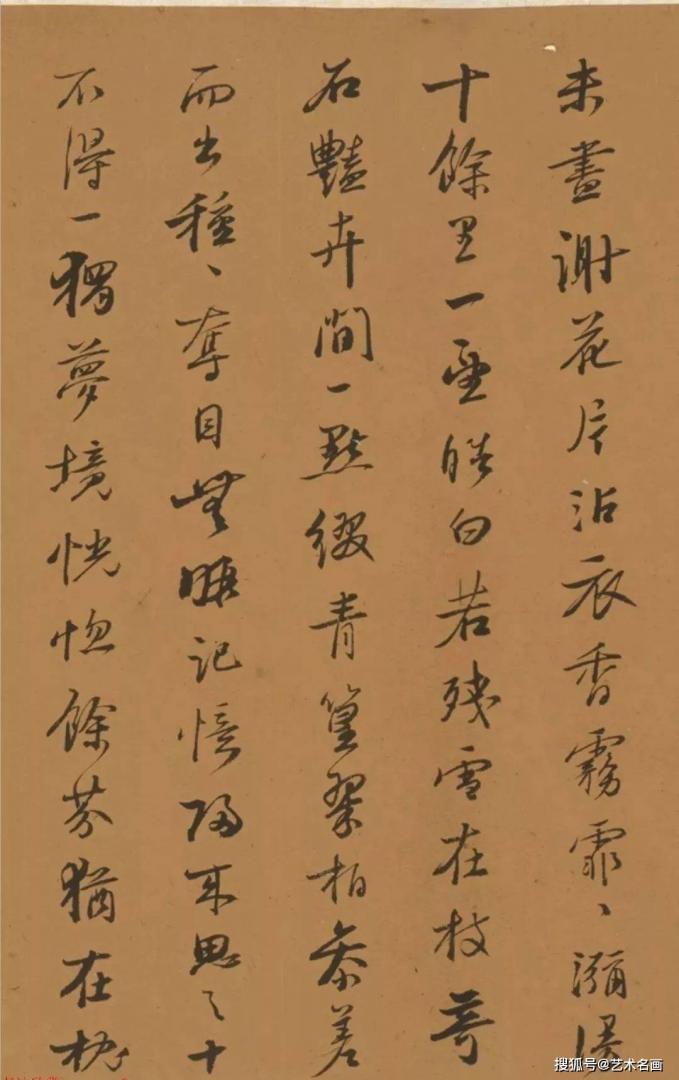 未盡謝花片沾衣香霧霏、瀰漫
十餘里一望皓白若殘雪在枝奇
石豔卉間一點綴青篁翠柏參差
而出種、奪目無暇記憶歸來思之十
不得一獨夢境恍惚餘芬猶在枕
搜狐号@艺术名画